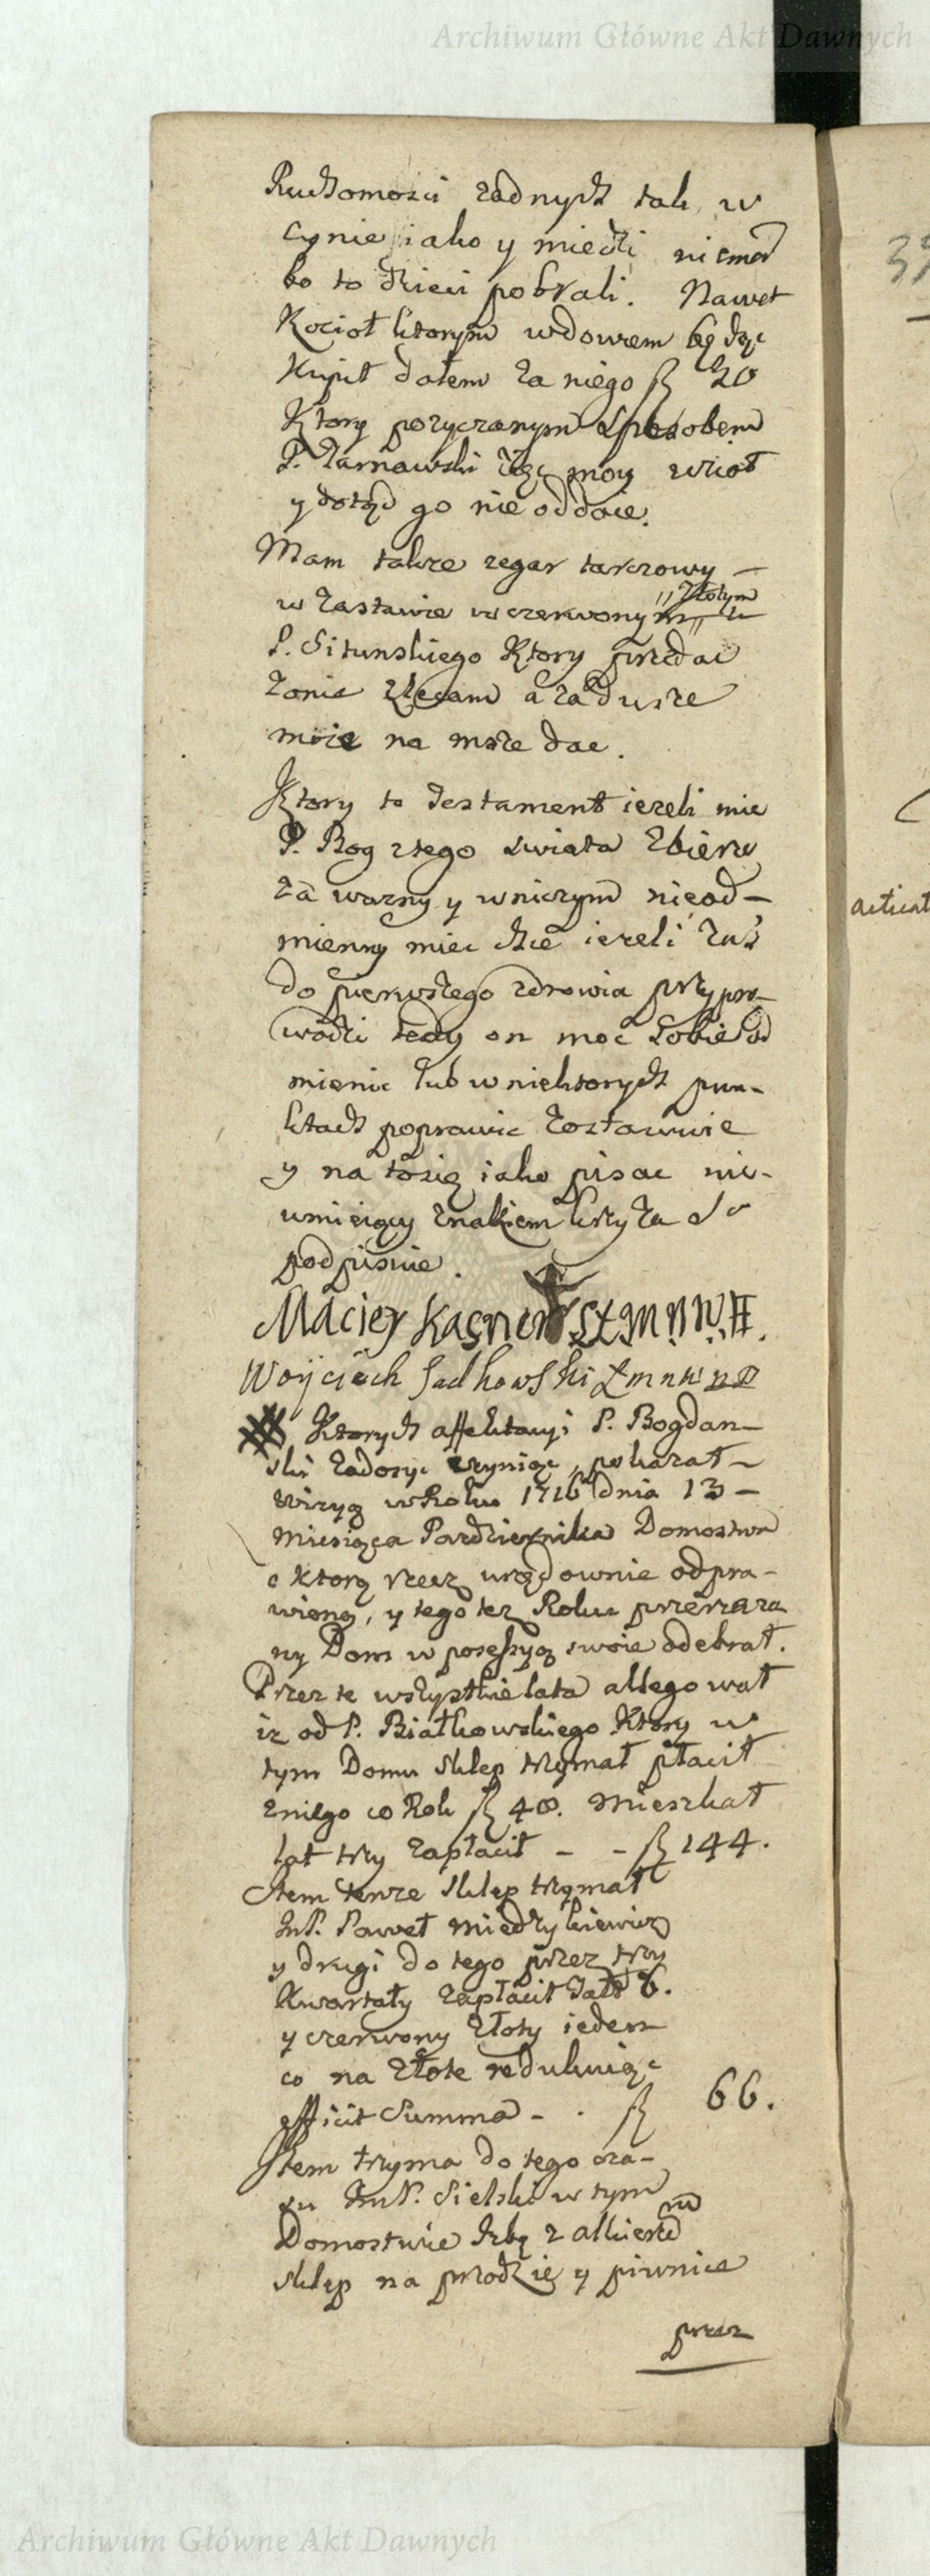 Archiwum Główne Akt Dawnych
Ruchomosci zadnych tak w
cynie iako y miedzi niemam
bo to dzieci pobrali. Nawet
Kocioł ktorym wdowem będąc
Kupił dałem za niego fl 20
Ktory pozyczanym sposobem
P. Tarnawski Zięc moy wzioł
y dotąd go nie oddaie.
Mam takze zegar tarczowy —
w zastawie w czerwonym złotym u
P. Situnskiego Ktory przedac
zonie zlecam a za dusze
moie na msze dac.
Ktory to Testament iezeli mie
P. Bog z tego swiata zbierze
za wazny y wniczym nieod-
mienny miec chce iezeli zas
do pierwszego zdrowia przypro-
wadzi tedy on moc sobie od
mienic lub w niektorych pun-
ktach poprawic zostawuie
y na to się iako pisac nie-
umieiący znakiem krzyza S
podpisuie.
Maciey Kasner
Woyciech Sadkowski
Ktorych affektacyi P. Bogdan-
ski zadosyc czyniąc, pokazał
Wizyą w Roku 1716 dnia 13 —
Miesiąca Pazdziernika Domostwa
o Ktorą rzecz urzędownie odpra-
wioną, y tego tez Roku przerzeczo
ny Dom w possessyą swoie odebrał.
Przez te wszystkie lata allegował
iz od P. Białkowskiego Ktory w
tym Domu sklep trzymał płacił
z niego co Rok fl 48. Mieszkał
lat trzy zapłacił - - fl 144.
Item tenze sklep trzymał
JmP. Paweł Miedzykiewicz
y drugi do tego przez trzy
Kwartały zapłacił Tall 6.
y czerwony złoty ieden
co na złote redukuiąc
efficit Summa - . fl 66.
Item trzyma do tego cza-
su JmP. Sielski w tym
Domostwie Izbę z alkierzem
sklep na przodzie y piwnice
przez
acticat
Archiwum Główne Akt Dawnych